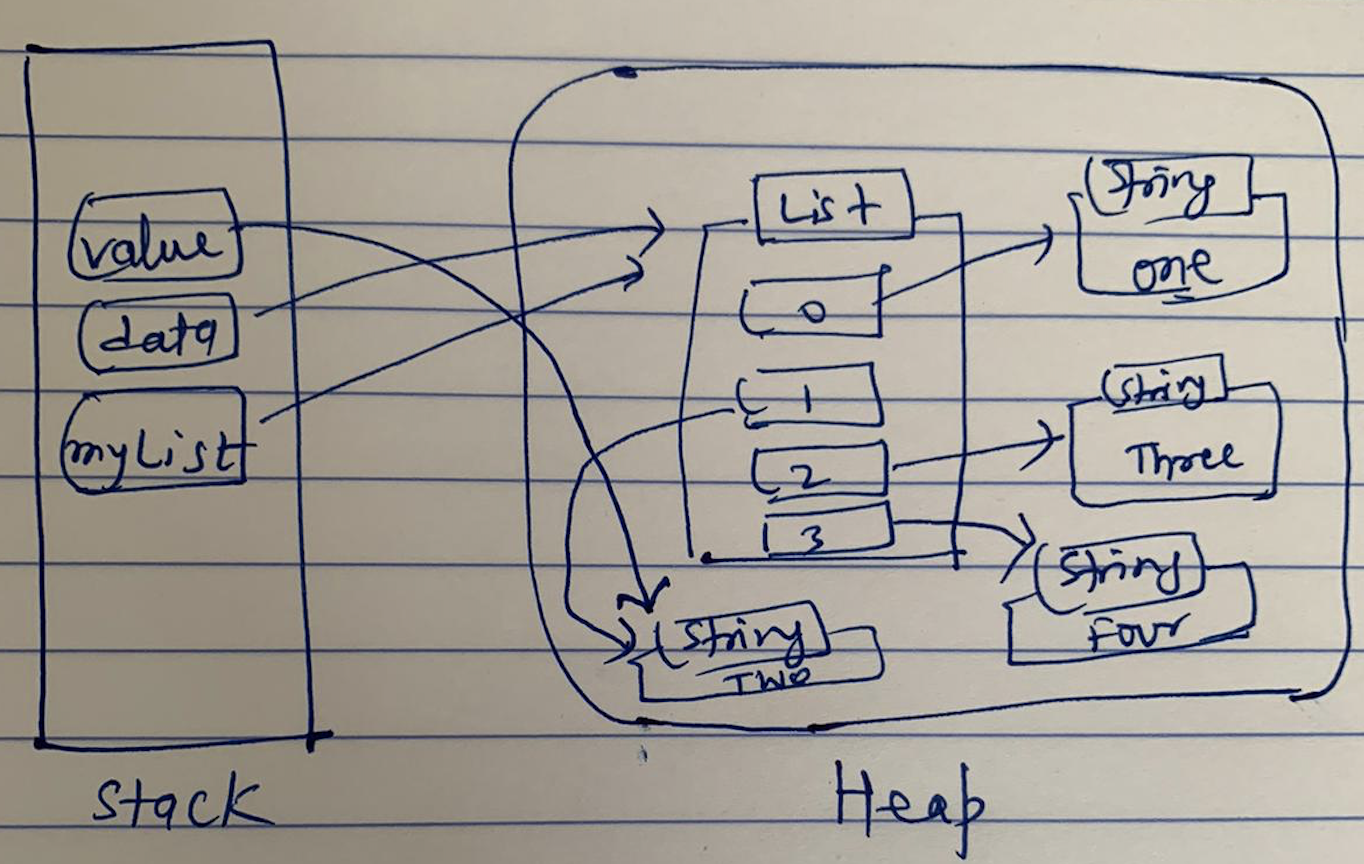 value
data
myList
Stack
List
0
1
2
3
String
one
String
Three
String
Four
String
TWO
Heap